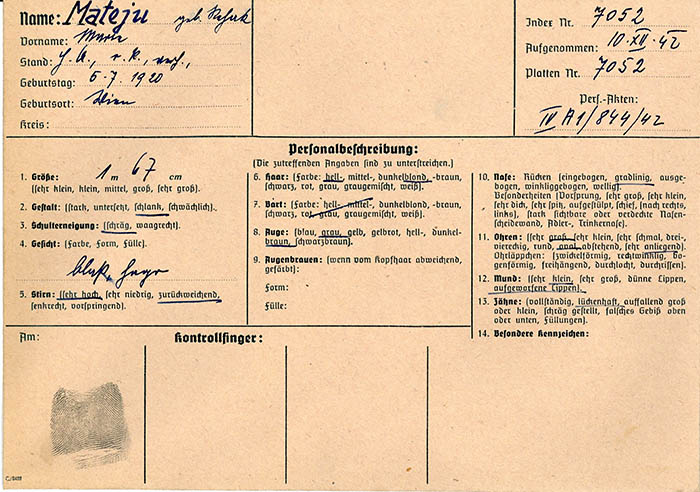 Name: Mateju geb.
Vorname: Marie
Stand: r. k., verh.,
Geburtstag: 6. 7. 1920
Geburtsort: Wien
Kreis:
Index Nr. 7052
Aufgenommen: 10. XII. 42
Platten Nr. 7052
Pers.-Akten:
IV A1/844/42
Personalbeschreibung:
(Die zutreffenden Angaben sind zu unterstreichen.)
1. Größe: 1 m 67 cm
(sehr klein, klein, mittel, groß, sehr groß).
2. Gestalt: (stark, untersetzt, schlank, schwächlich).
3. Schulterneigung: (schräg, waagrecht).
4. Gesicht: (Farbe, Form, Fülle).
5. Stirn: (sehr hoch, sehr niedrig, zurückweichend,
senkrecht, vorspringend).
6. Haar: (Farbe: hell-, mittel-, dunkelblond, -braun,
schwarz, rot, grau, graugemischt, weiß).
7. Bart: (Farbe: hell-, mittel-, dunkelblond, -braun,
schwarz, rot, grau, graugemischt, weiß).
8. Auge: (blau, grau, gelb, gelbrot, hell-, dunkel-
braun, schwarzbraun).
9. Augenbrauen: (wenn vom Kopfhaar abweichend,
gefärbt):
Form:
Fülle:
10. Nase: Rücken (eingebogen, gradlinig, ausge-
bogen, winkliggebogen, wellig).
Besonderheiten (Vorsprung, sehr groß, sehr klein,
sehr dick, sehr spitz, aufgestülpt, schief, (nach rechts,
links), stark sichtbare oder verdeckte Nasen-
scheidewand, Adler-, Trinkernase).
11. Ohren: (sehr groß, sehr klein, sehr schmal, drei-
viereckig, rund, oval, abstehend, sehr anliegend).
Ohrläppchen: (zwickelförmig, rechtwinklig, bo-
genförmig, freihängend, durchlocht, durchrissen).
12. Mund: (sehr klein, sehr groß, dünne Lippen,
aufgeworfene Lippen).
13. Zähne: (vollständig, lückenhaft, auffallend groß
oder klein, schräg gestellt, falsches Gebiß oben
oder unten, Füllungen).
14. Besondere Kennzeichen:
Am:
Kontrollfinger: